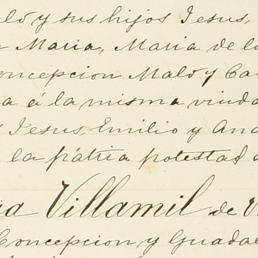 do y sus hijos Jesus,
Maria, Maria de l
Concepcion Malo y Ca
a á la misma viuda
Jesus, Emilio y Ana
la pátria potestad
Villamil de V
Concepcion y Guadal